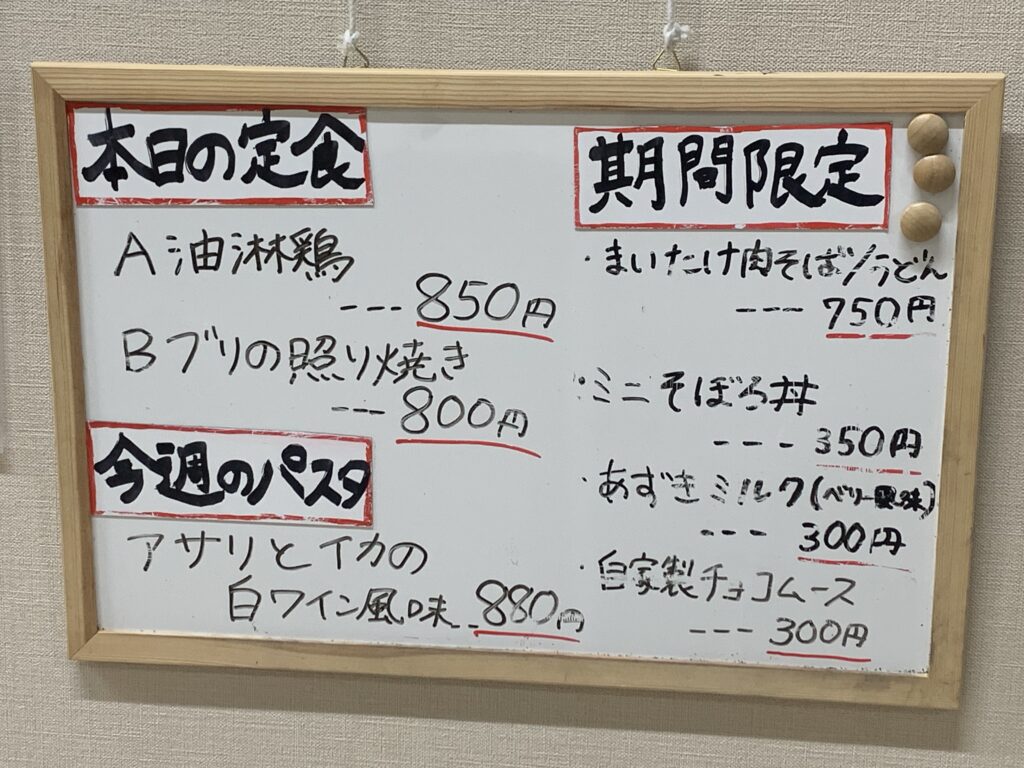 本日の定食
A油淋鶏
---850円
Bブリの照り焼き
---800円
今週のパスタ
アサリとイカの
白ワイン風味...880円
期間限定
・まいたけ肉そば/うどん
---750円
・ミニそぼろ丼
---350円
・あずきミルク(ベリー風味)
---300円
・自家製チョコムース
---300円